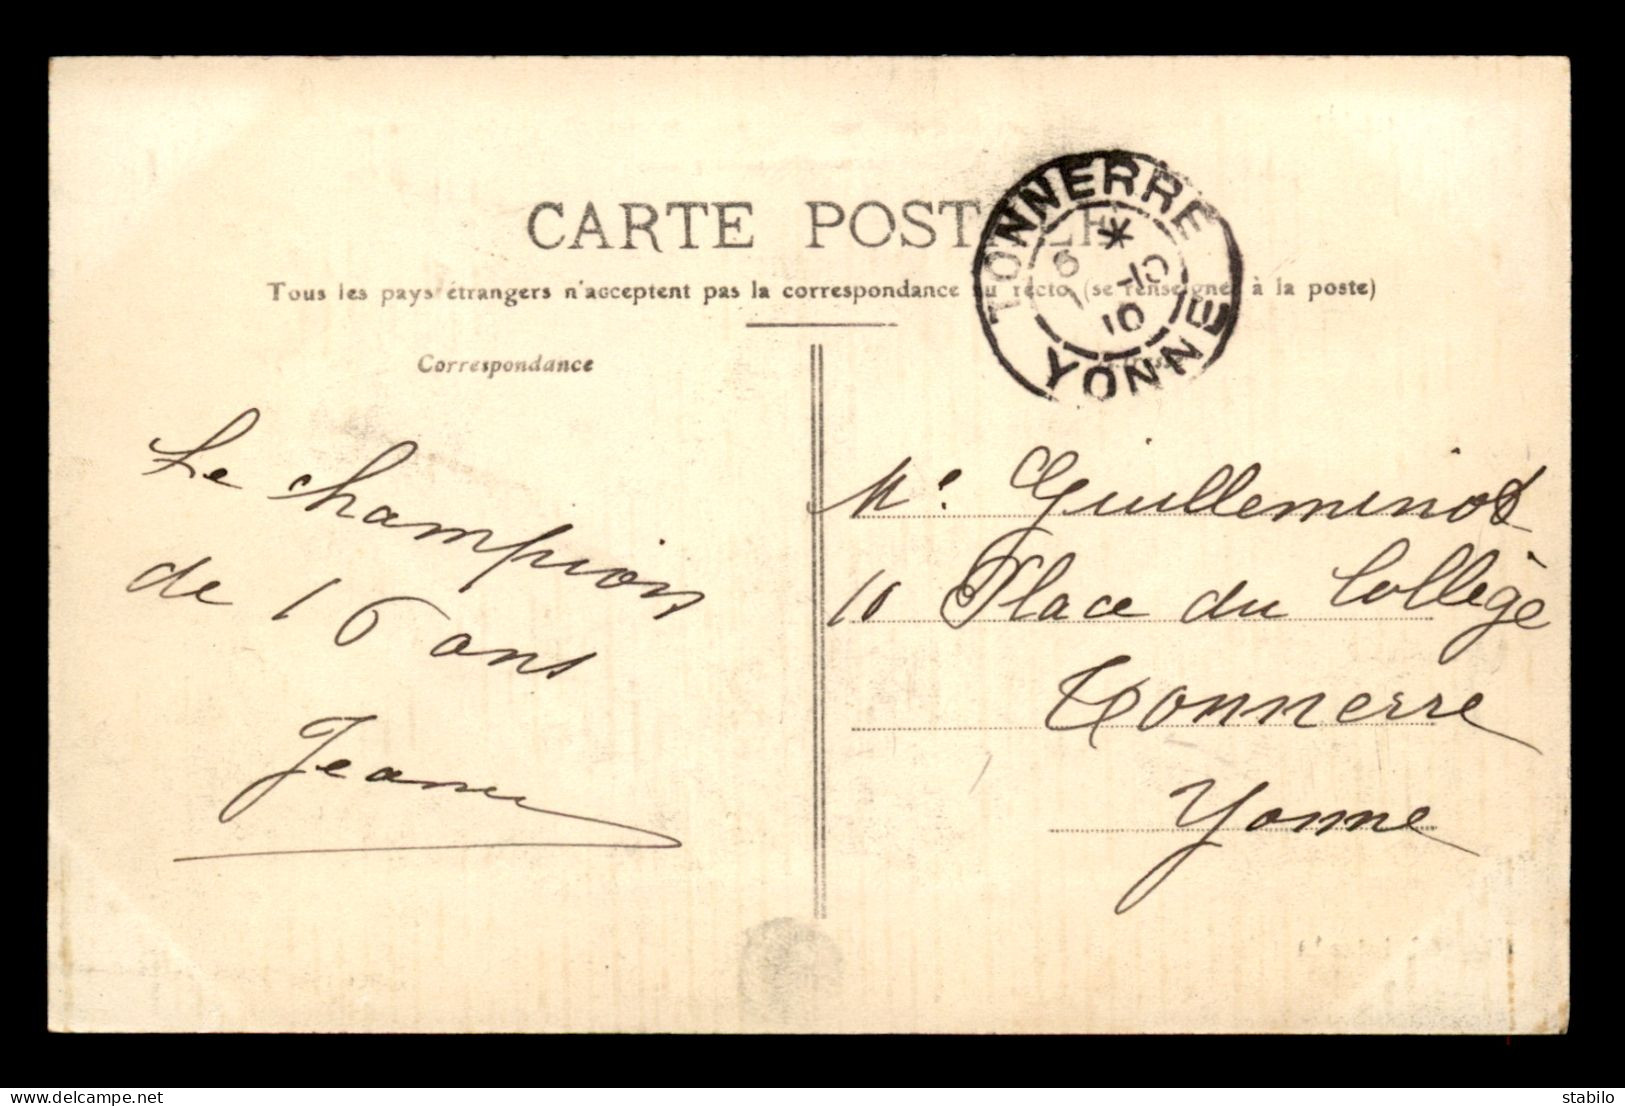 CARTE POSTALE
Tous les pays étrangers n'acceptent pas la correspondance au recto (se renseigner à la poste)
TONNERRE
YONNE
10
Correspondance
Le champion
de 16 ans
Jeanne
Me. Guilleminot
10 Place du Collège
Tonnerre
Yonne
delcampe.net
stabilo